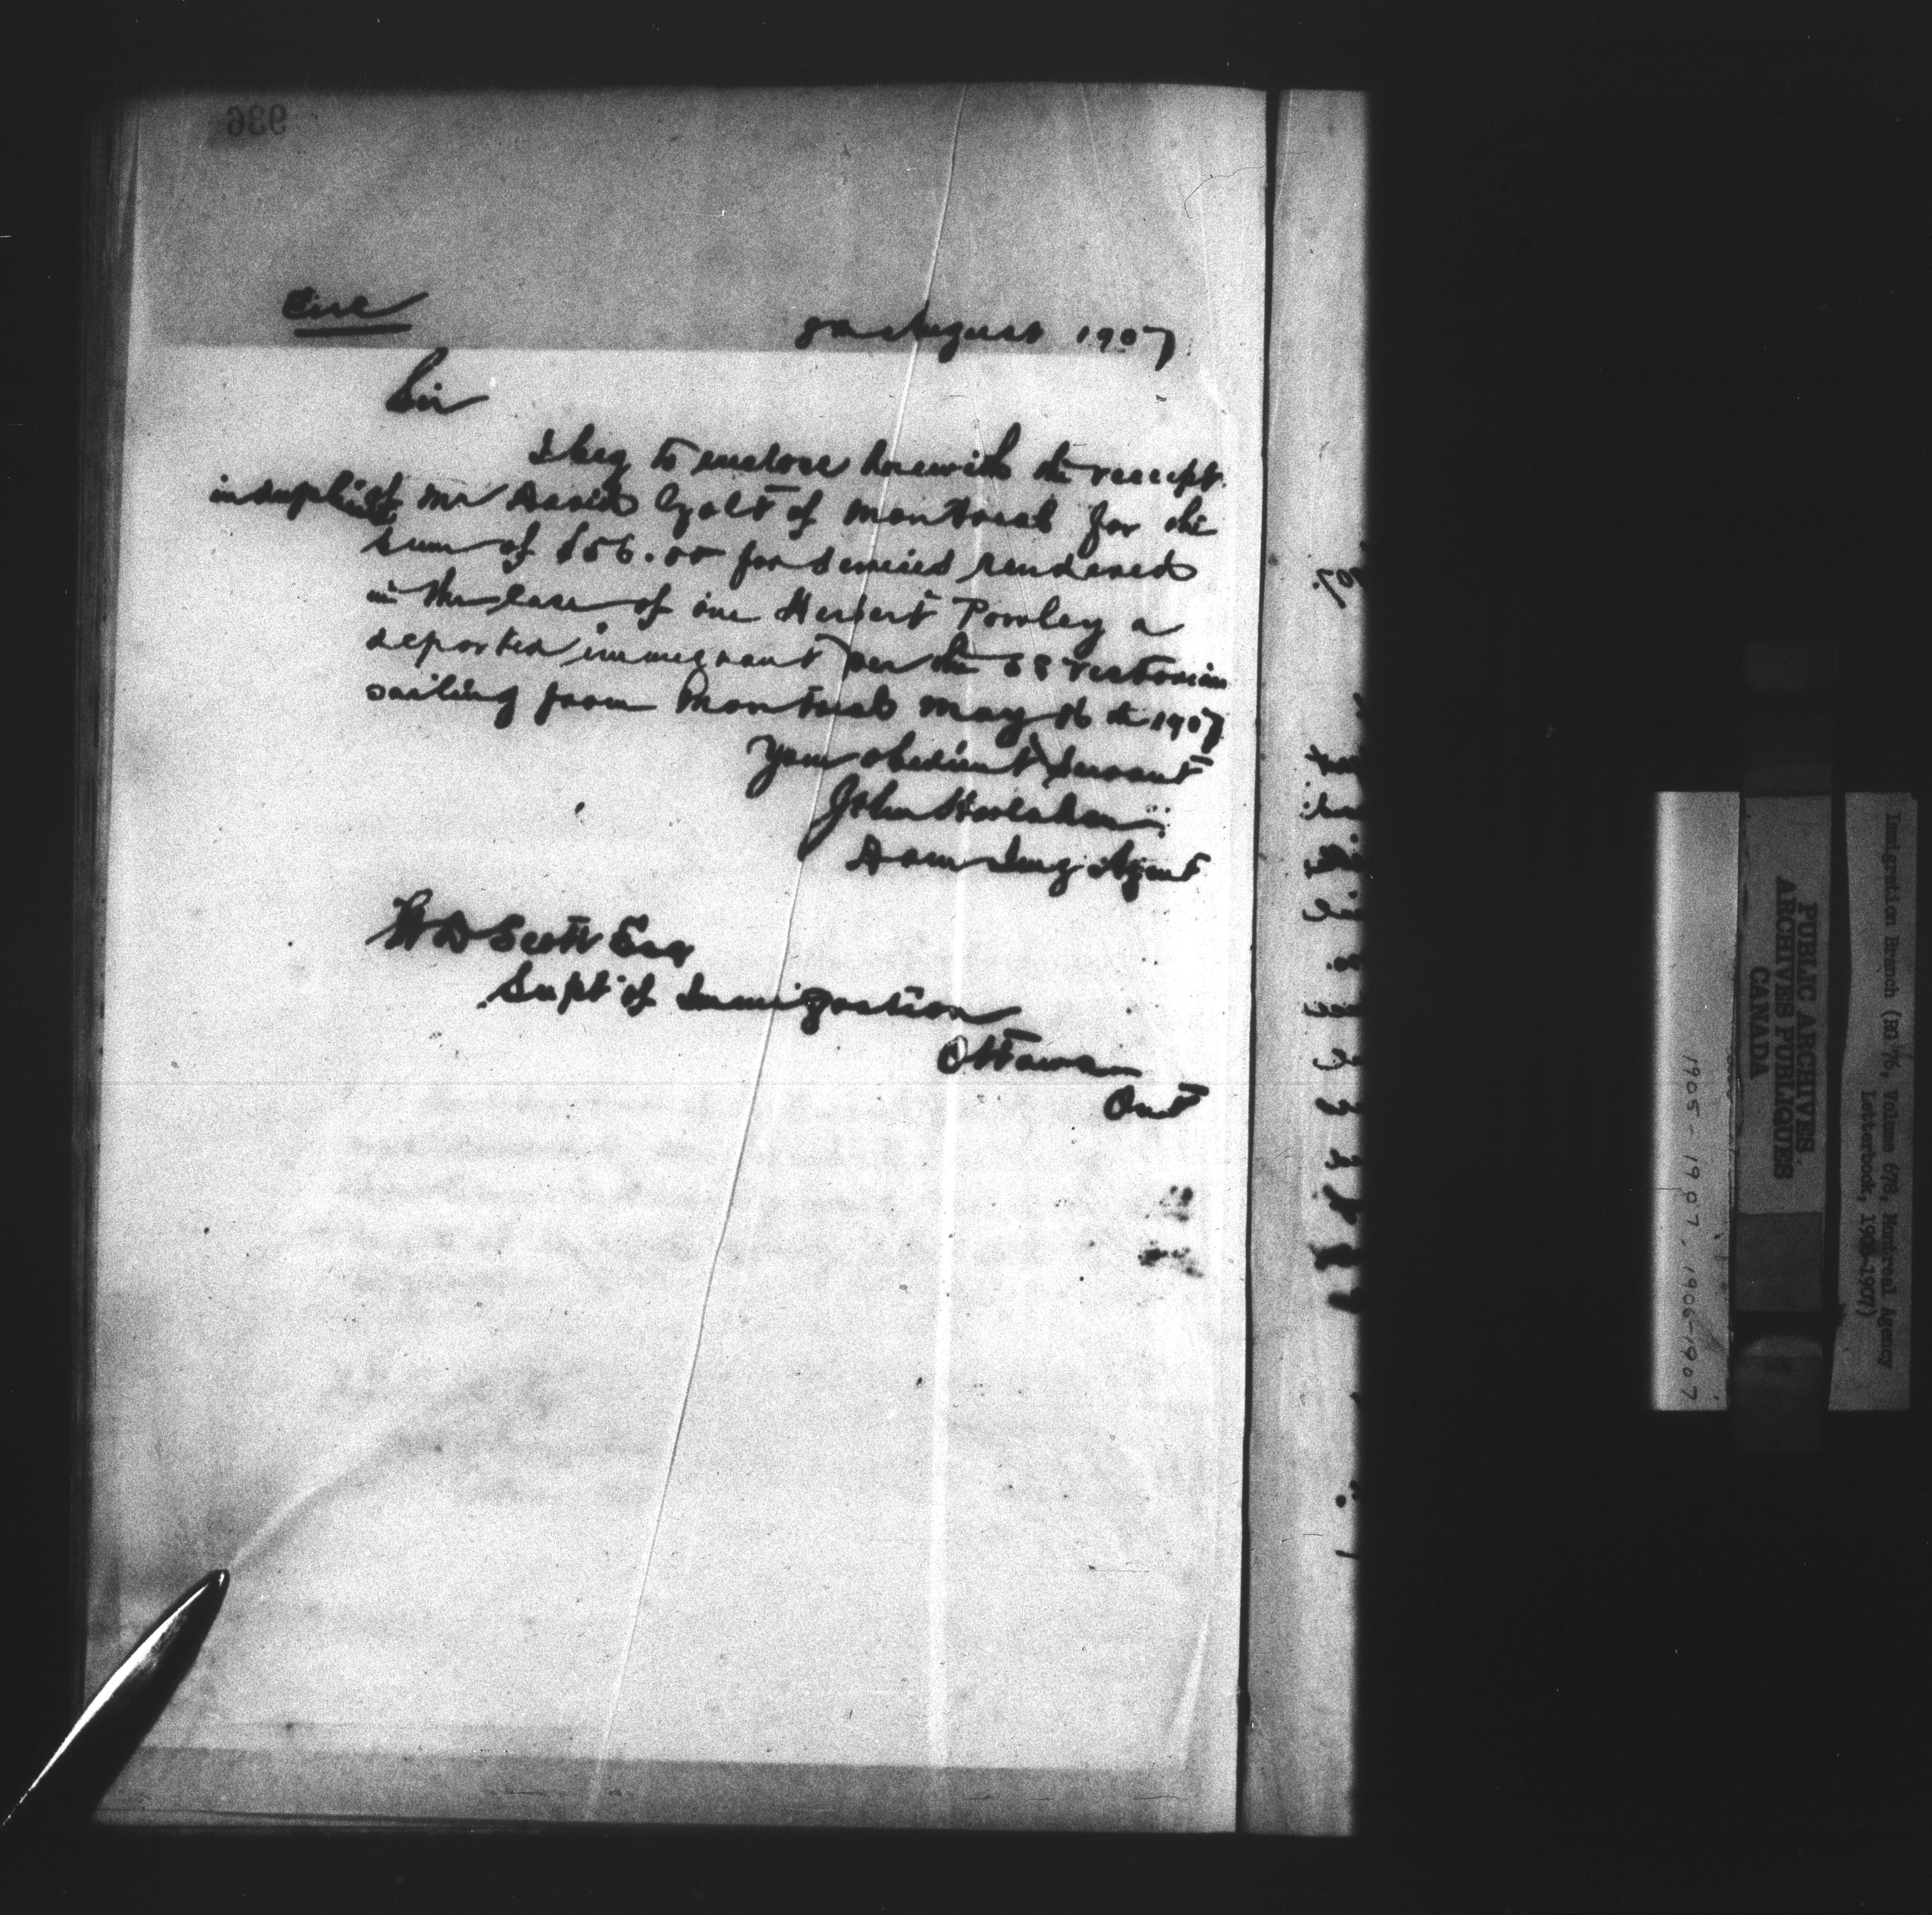 936
8th August 1907
Sir
I beg to enclose herewith the receipt
in duplicate of Mr David Galt of Montreal for the
sum of $56.00 for services rendered
in the case of one Herbert Powley a
deported immigrant per the SS Victorian
sailing from Montreal May 16th 1907
Your obedient Servant
John Hoolahan
Dom Img Agent
W D Scott Esq
Supt of Immigration
Ottawa
Ont
Immigration Branch (RG 76, Volume 678, Montreal Agency
Letterbook, 1905-1907)
PUBLIC ARCHIVES
ARCHIVES PUBLIQUES
CANADA
1905-1907, 1906-1907